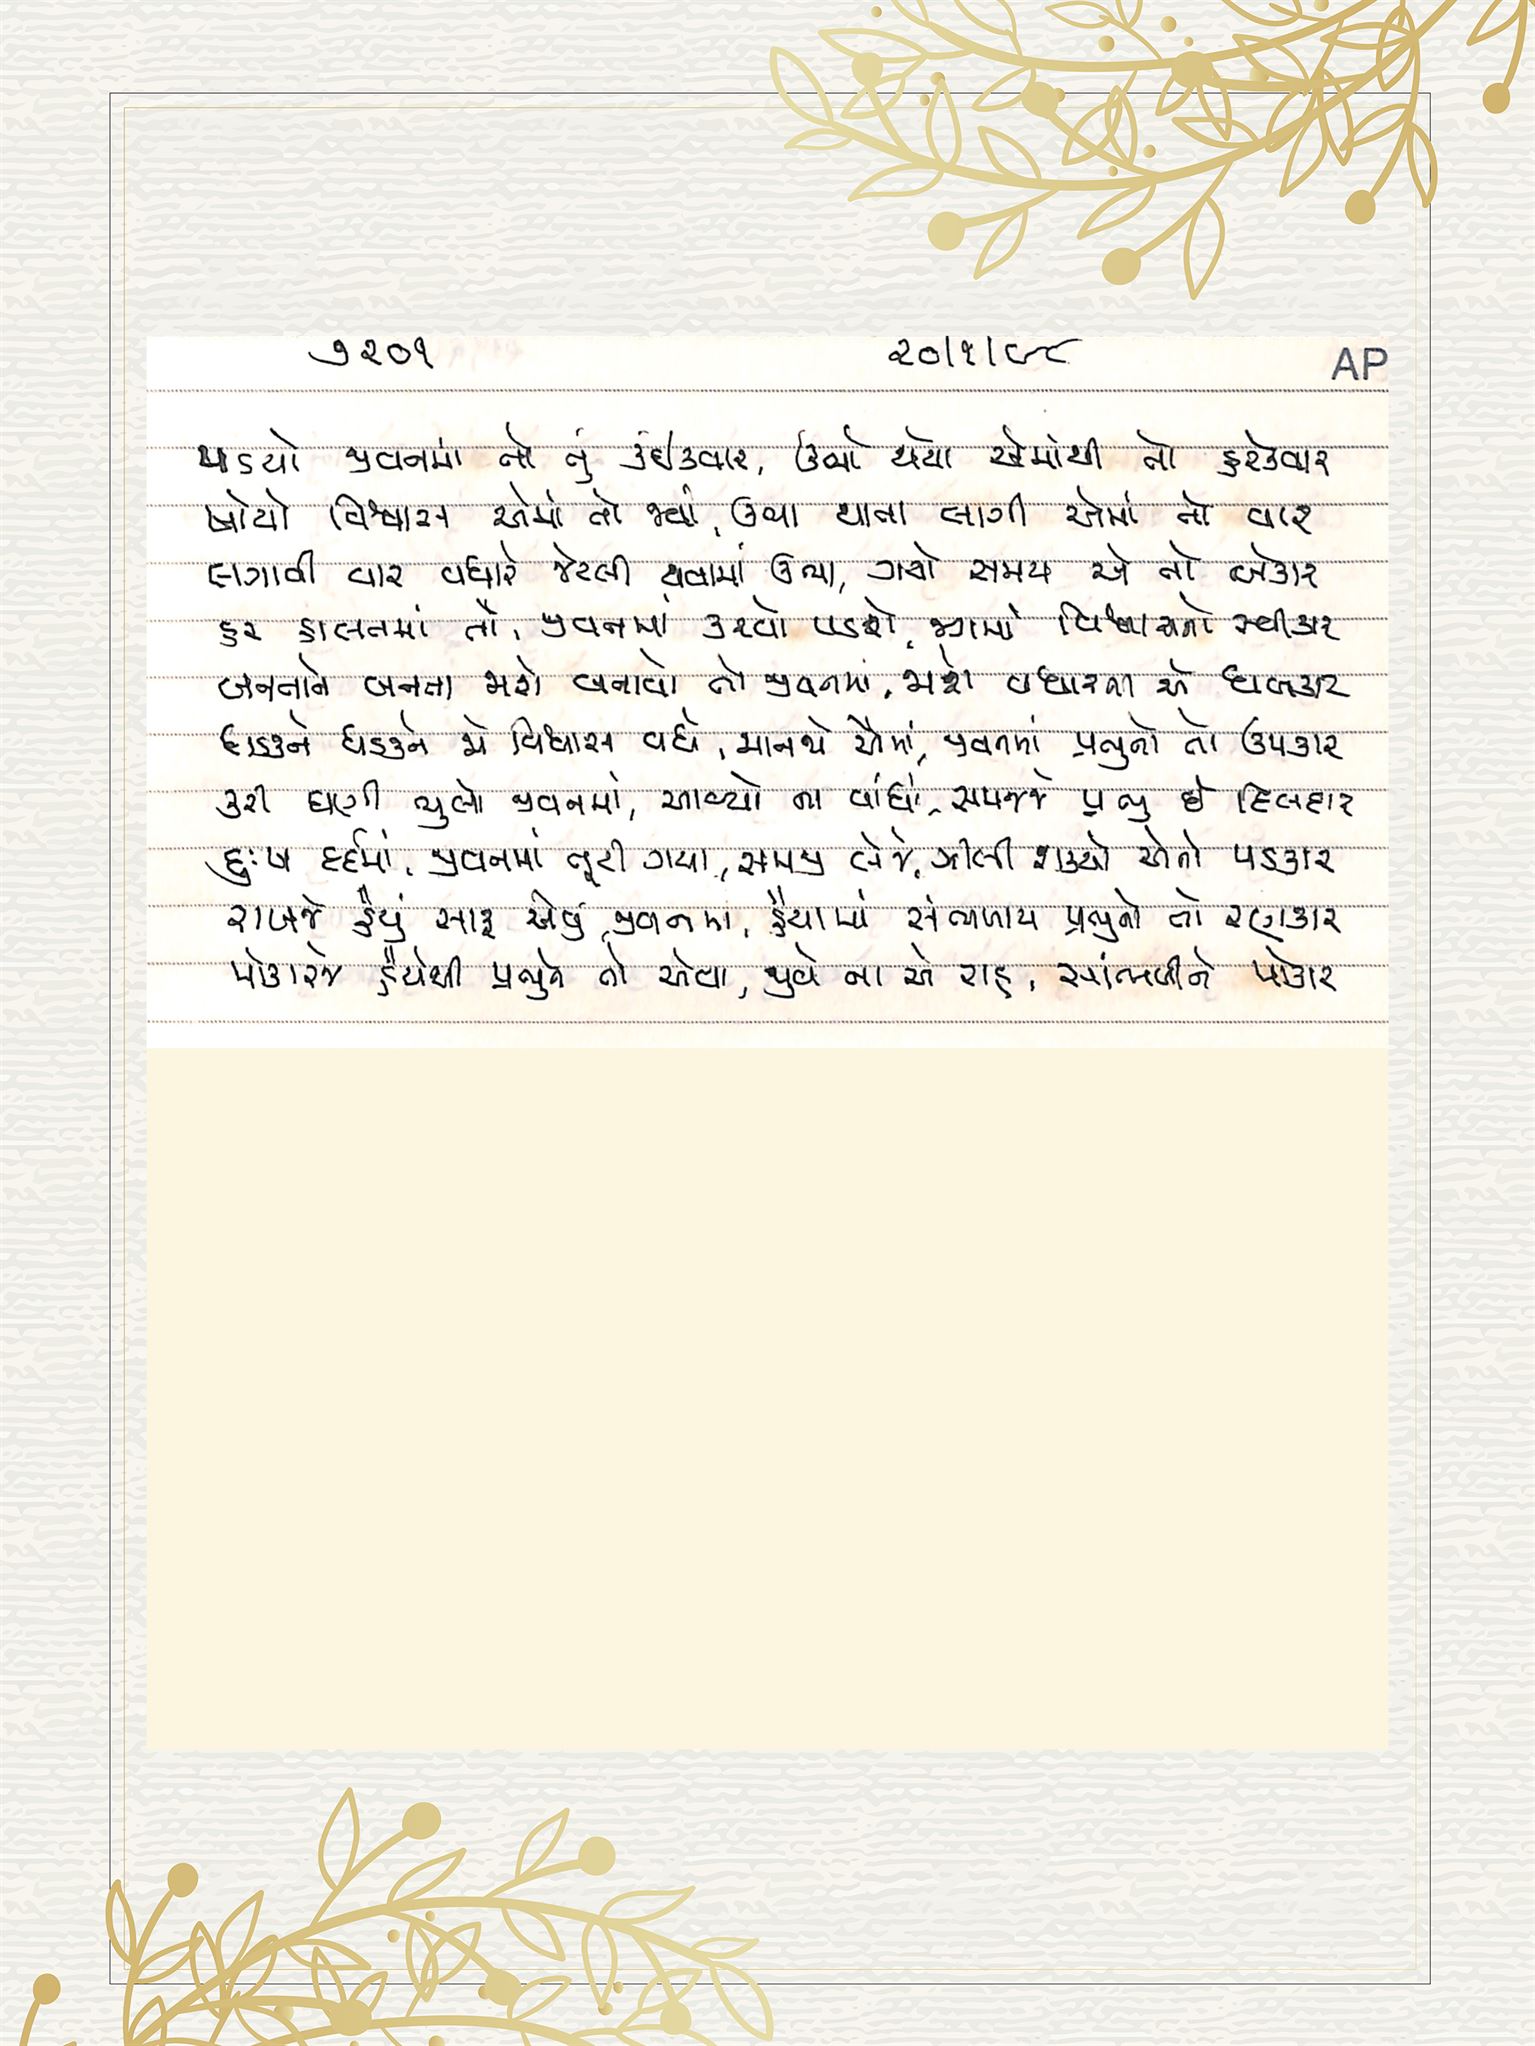 ૭૨૦૧ ૨૦/૧/૯૮ AP
પડયો જીવનમાં તો તું કંઈકવાર, ઉભો થયો એમાંથી તો હરેકવાર
ખોયો વિશ્વાસ એમાં તો જ્યાં, ઉભા થાતા લાગી એમાં તો વાર
લગાવી વાર વધારે જેટલી થવામાં ઉભા, ગયો સમય એ તો બેકાર
હર હાલતમાં તો, જીવનમાં કરવો પડશે, જગમાં વિશ્વાસનો સ્વીકાર
બનતાને બનતા જાશે બનાવો તો જીવનમાં, જાશે વધારતા એ ધબકાર
ધડકને ધડકને જો વિશ્વાસ વધે, માનજે એમાં, જીવનમાં પ્રભુનો તો ઉપકાર
કરી ઘણી ભુલો જીવનમાં, આવ્યો ના વાંધો, સમજજે પ્રભુ છે દિલદાર
દુઃખ દર્દમાં, જીવનમાં તૂટી ગયા, સમજી લેજે, ઝીલી શક્યો એનો પડકાર
રાખજે હૈયું સાફ એવું જીવનમાં, હૈયામાં સંભળાય પ્રભુનો તો રણકાર
પોકારજે હૈયેથી પ્રભુને તો એવા, જુવે ના એ રાહ, સાંભળીને પોકાર